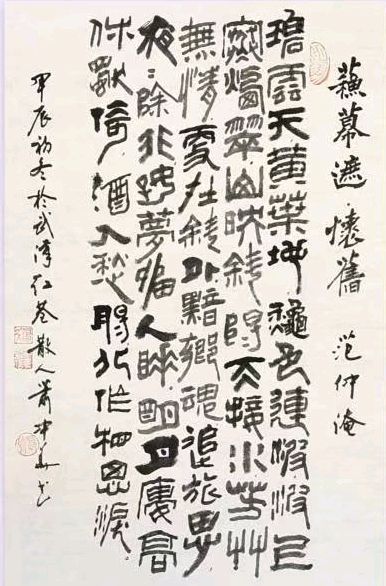 蘓幕遮 懷舊 范仲淹
碧雲天黃葉地穐色連波波上
寒煙翠山映斜陽天接水芳艸
無情更在斜外黯鄉魂追旅思
夜〻除非好夢留人睡明月樓高
休獨倚酒入愁腸化作相思淚
甲辰初冬於武漢紅巷散人